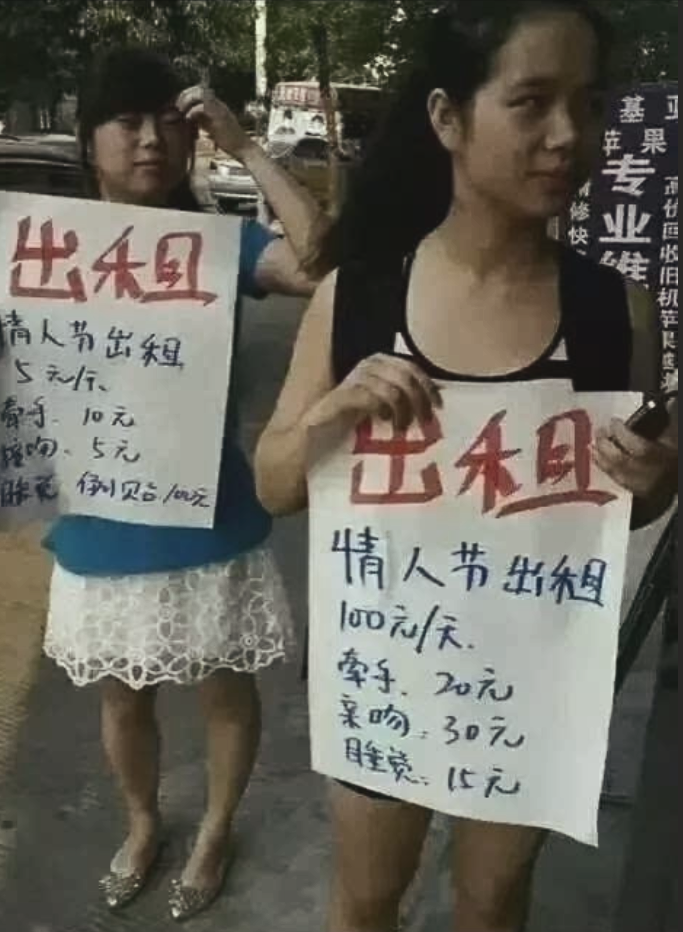 出租
情人节出租
5元/天
牵手. 10元
接吻. 5元
睡觉 倒贴100元
出租
情人节出租
100元/天.
牵手. 20元
亲吻. 30元
睡觉. 15元
基
苹果
专业维
修快
高价回收旧机苹果